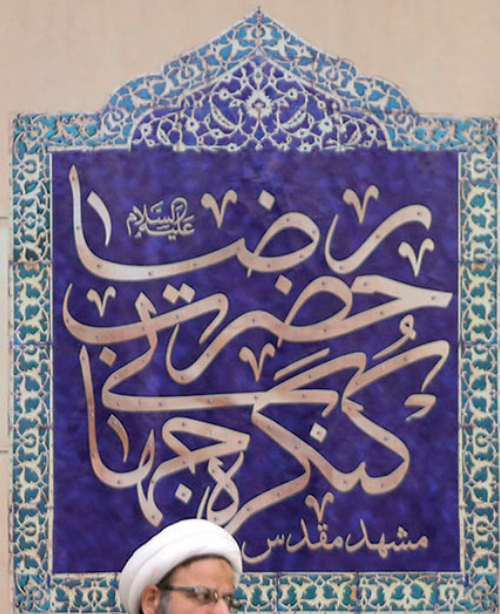 کنگره جهانی
حضرت
رضا علیه السلام
مشهد مقدس